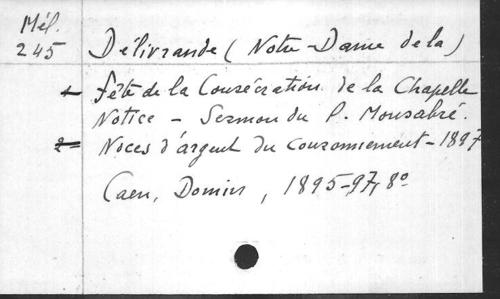 Mél.
245
Délivrande (Notre-Dame de la)
1 - Fête de la Consécration de la Chapelle
Notice - Sermon du P. Monsabré.
2 - Noces d'argent du Couronnement - 1897
Caen, Domin, 1895-97, 8º